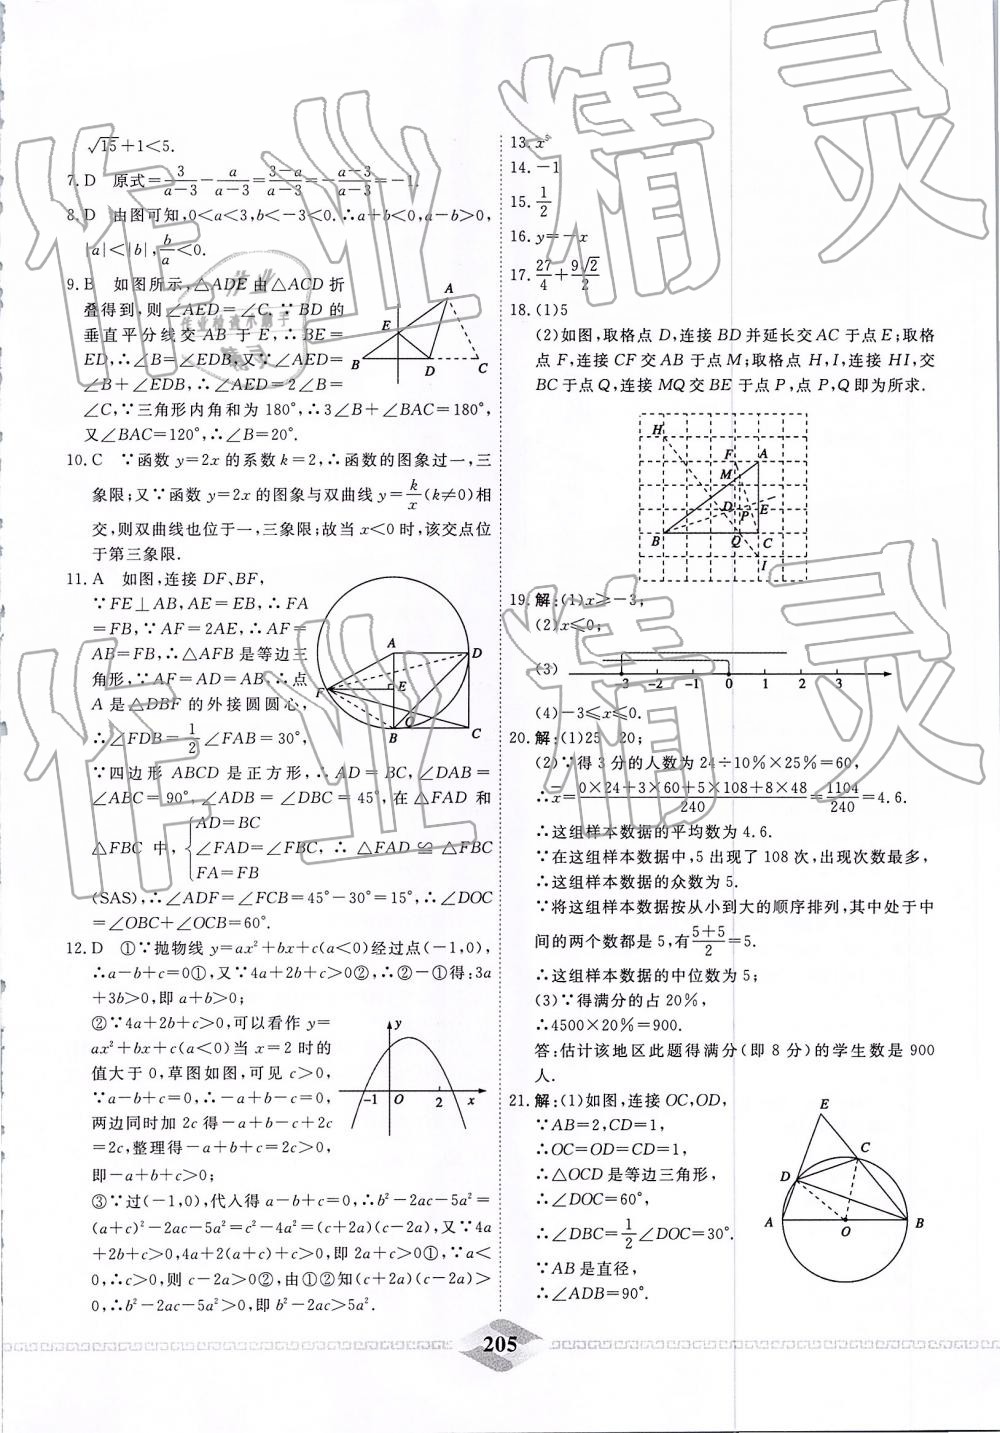 √15+1<5.
7. D 原式=3/(a-3)-a/(a-3)=(3-a)/(a-3)=-(a-3)/(a-3)=-1.
8. D 由图可知,0<a<3,b<-3<0.∴a+b<0,a-b>0,
|a|<|b|,b/a<0.
9. B 如图所示,△ADE由△ACD折
叠得到,则∠AED=∠C,∵BD的
垂直平分线交AB于E,∴BE=
ED,∴∠B=∠EDB,又∵∠AED=
∠B+∠EDB,∴∠AED=2∠B=
∠C,∵三角形内角和为180°,∴3∠B+∠BAC=180°,
又∠BAC=120°,∴∠B=20°.
A
E
B D C
10. C ∵函数y=2x的系数k=2,∴函数的图象过一,三
象限;又∵函数y=2x的图象与双曲线y=k/x(k≠0)相
交,则双曲线也位于一,三象限;故当x<0时,该交点位
于第三象限.
11. A 如图,连接DF、BF,
∵FE⊥AB,AE=EB,∴FA
=FB,∵AF=2AE,∴AF=
AB=FB,∴△AFB是等边三
角形,∵AF=AD=AB,∴点
A是△DBF的外接圆圆心,
∴∠FDB=1/2∠FAB=30°,
A D
F E
B O C
∵四边形ABCD是正方形,∴AD=BC,∠DAB=
∠ABC=90°,∠ADB=∠DBC=45°,在△FAD和
△FBC中,{AD=BC
∠FAD=∠FBC,∴△FAD≌△FBC
FA=FB
(SAS),∴∠ADF=∠FCB=45°-30°=15°,∴∠DOC
=∠OBC+∠OCB=60°.
12. D ①∵抛物线y=ax²+bx+c(a<0)经过点(-1,0),
∴a-b+c=0①,又∵4a+2b+c>0②,∴②-①得:3a
+3b>0,即a+b>0;
②∵4a+2b+c>0,可以看作y=
ax²+bx+c(a<0)当x=2时的
值大于0,草图如图,可见c>0,
∵a-b+c=0,∴-a+b-c=0,
两边同时加2c得-a+b-c+2c
=2c,整理得-a+b+c=2c>0,
即-a+b+c>0;
y
-1 O 2 x
③∵过(-1,0),代入得a-b+c=0,∴b²-2ac-5a²=
(a+c)²-2ac-5a²=c²-4a²=(c+2a)(c-2a),又∵4a
+2b+c>0,4a+2(a+c)+c>0,即2a+c>0①,∵a<
0,∴c>0,则c-2a>0②,由①②知(c+2a)(c-2a)>
0,∴b²-2ac-5a²>0,即b²-2ac>5a².
13. x⁵
14. -1
15. 1/2
16. y=-x
17. 27/4+9√2/2
18. (1)5
(2)如图,取格点D,连接BD并延长交AC于点E;取格
点F,连接CF交AB于点M;取格点H,I,连接HI,交
BC于点Q,连接MQ交BE于点P,点P,Q即为所求.
H
F A
M
D P E
B Q C
I
19. 解:(1)x≥-3;
(2)x≤0;
(3)
-3 -2 -1 0 1 2 3
(4)-3≤x≤0.
20. 解:(1)25 20;
(2)∵得3分的人数为24÷10%×25%=60,
∴x̄=(0×24+3×60+5×108+8×48)/240=1104/240=4.6.
∴这组样本数据的平均数为4.6.
∵在这组样本数据中,5出现了108次,出现次数最多,
∴这组样本数据的众数为5.
∵将这组样本数据按从小到大的顺序排列,其中处于中
间的两个数都是5,有(5+5)/2=5.
∴这组样本数据的中位数为5;
(3)∵得满分的占20%,
∴4500×20%=900.
答:估计该地区此题得满分(即8分)的学生数是900
人.
21. 解:(1)如图,连接OC,OD,
∵AB=2,CD=1,
∴OC=OD=CD=1,
∴△OCD是等边三角形,
∴∠DOC=60°,
∴∠DBC=1/2∠DOC=30°.
∵AB是直径,
∴∠ADB=90°.
E
C
D
A O B
205
作业精灵
作业精灵